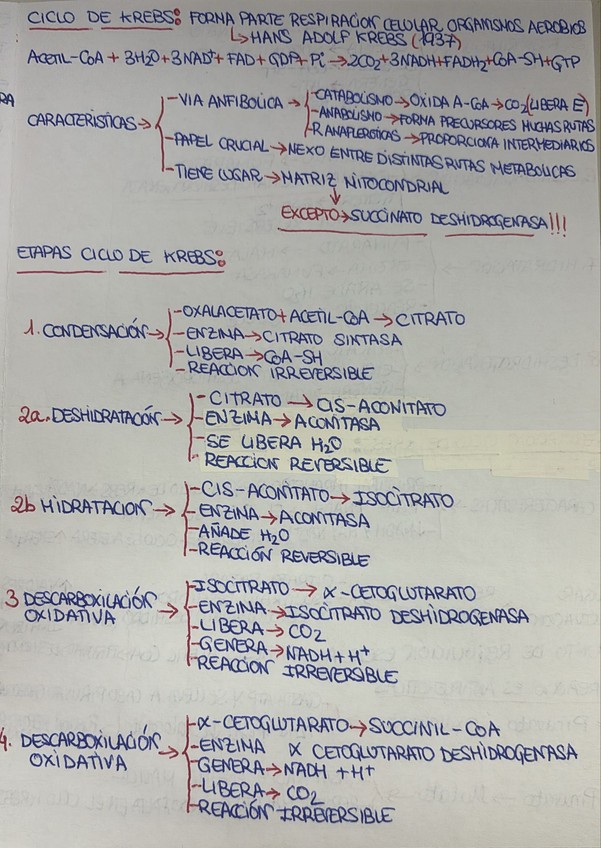 CICLO DE KREBS: FORMA PARTE RESPIRACIÓN CELULAR ORGANISMOS AEROBIOS
↳HANS ADOLF KREBS (1937)
ACETIL-CoA + 3H2O + 3NAD+ + FAD + GDP + Pi → 2CO2 + 3NADH + FADH2 + CoA-SH + GTP
RA
CARACTERISTICAS →
-VIA ANFIBOLICA →
-CATABOLISMO → OXIDA A-CoA → CO2 (LIBERA E)
-ANABOLISMO → FORMA PRECURSORES MUCHAS RUTAS
-R ANAPLEROTICAS → PROPORCIONA INTERMEDIARIOS
-PAPEL CRUCIAL → NEXO ENTRE DISTINTAS RUTAS METABOLICAS
-TIENE LUGAR → MATRIZ MITOCONDRIAL
↓
EXCEPTO → SUCCINATO DESHIDROGENASA!!!
ETAPAS CICLO DE KREBS:
1. CONDENSACIÓN →
-OXALACETATO + ACETIL-CoA → CITRATO
-ENZINA → CITRATO SINTASA
-LIBERA → CoA-SH
-REACCION IRREVERSIBLE
2a. DESHIDRATACIÓN →
-CITRATO → CIS-ACONITATO
-ENZIMA → ACONITASA
-SE LIBERA H2O
-REACCION REVERSIBLE
2b HIDRATACION →
-CIS-ACONITATO → ISOCITRATO
-ENZIMA → ACONITASA
-AÑADE H2O
-REACCIÓN REVERSIBLE
3 DESCARBOXILACIÓN OXIDATIVA →
-ISOCITRATO → α-CETOGLUTARATO
-ENZIMA → ISOCITRATO DESHIDROGENASA
-LIBERA → CO2
-GENERA → NADH + H+
-REACCIÓN IRREVERSIBLE
4. DESCARBOXILACIÓN OXIDATIVA →
-α-CETOGLUTARATO → SUCCINIL-CoA
-ENZINA α CETOGLUTARATO DESHIDROGENASA
-GENERA → NADH + H+
-LIBERA → CO2
-REACCIÓN IRREVERSIBLE